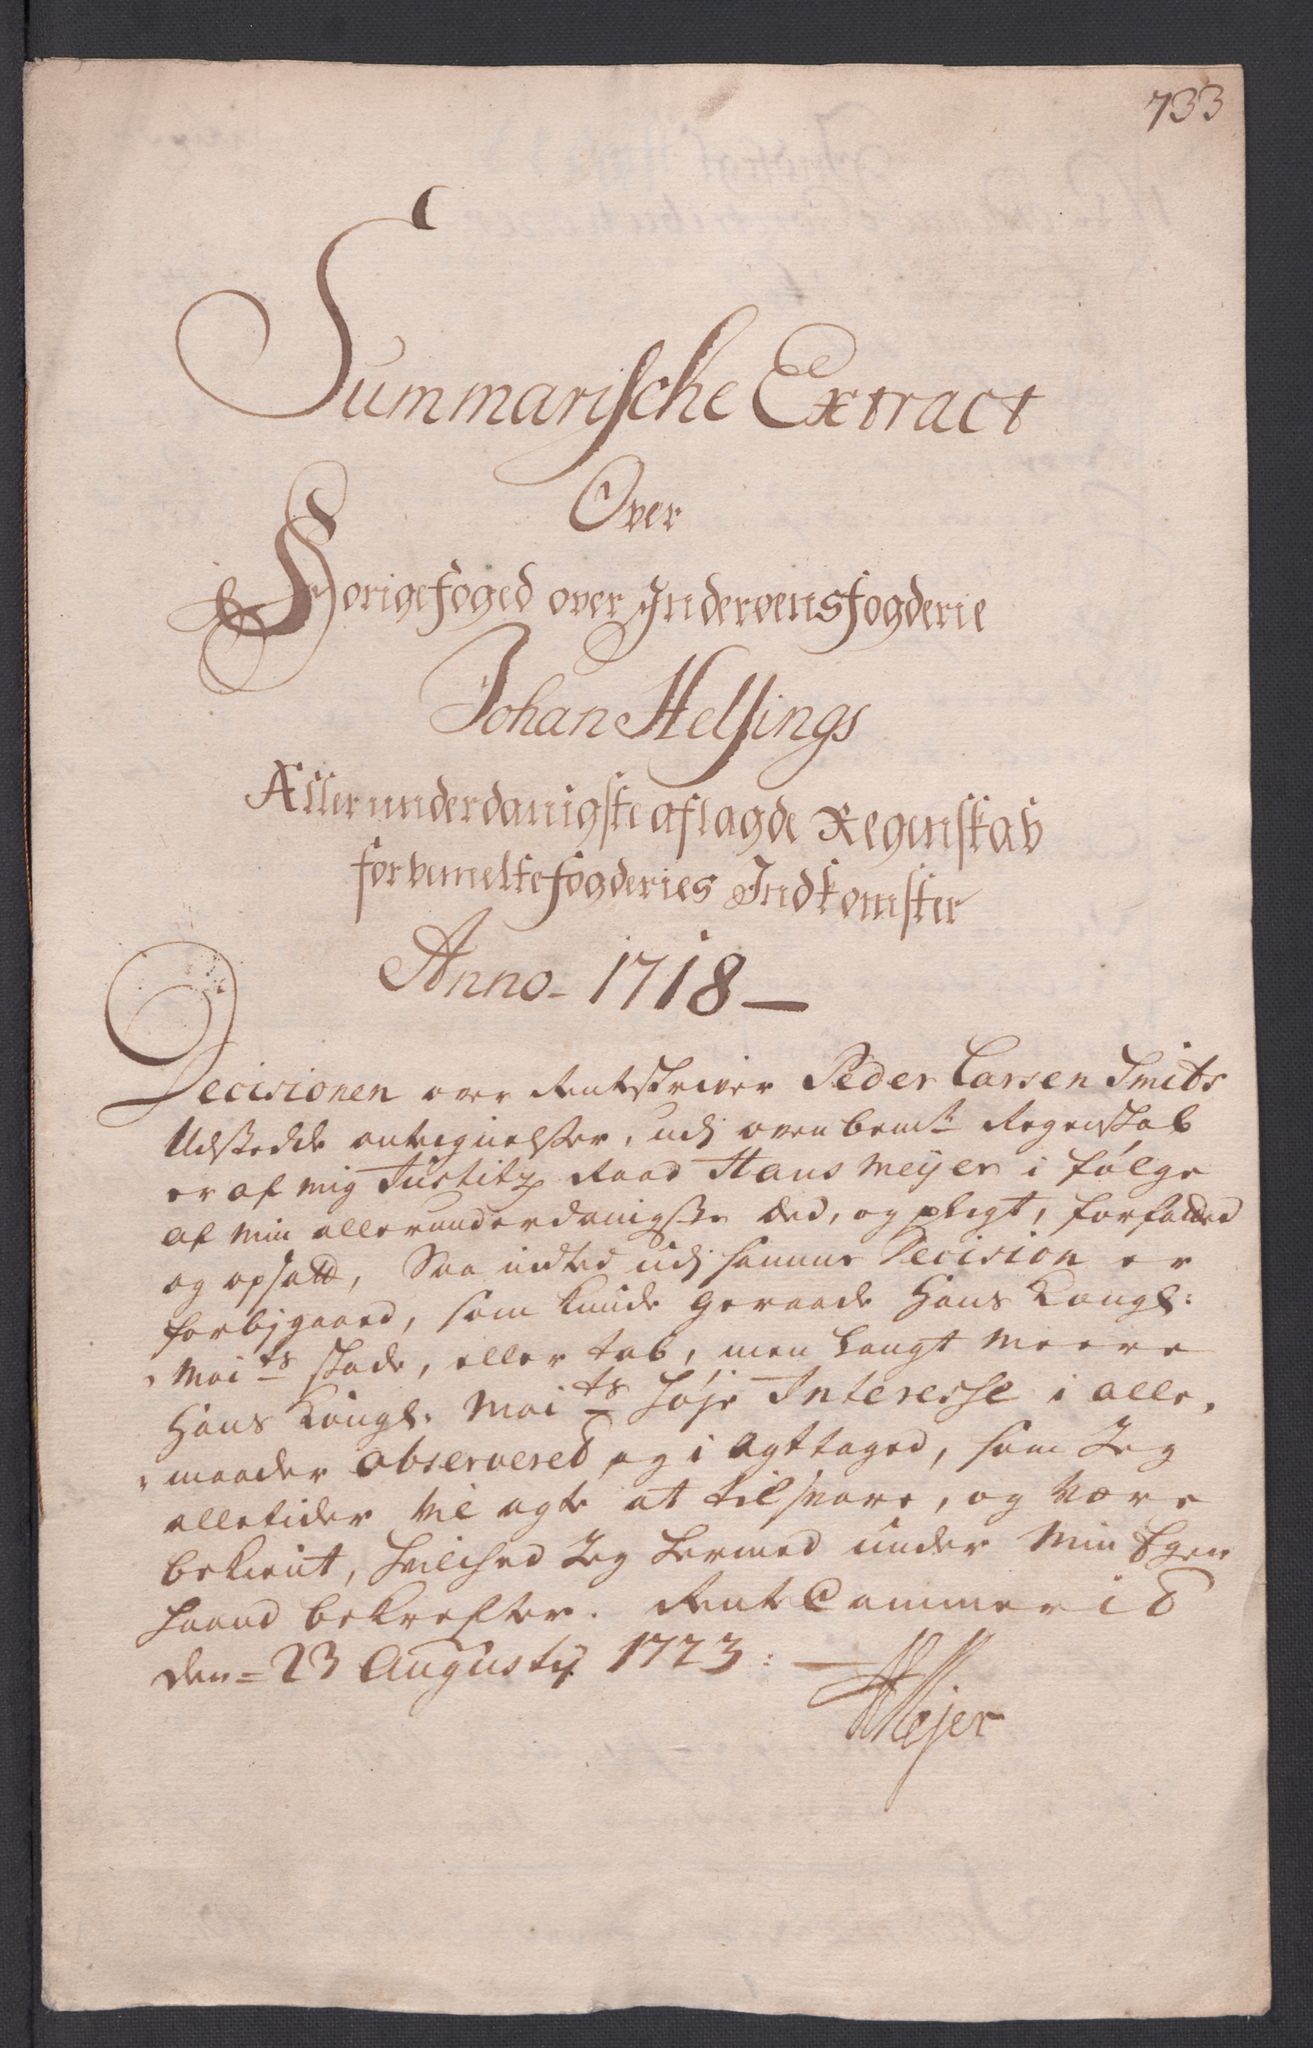 733
Summarische Extract
Over
Forige foged over Inderøens fogderie
Johan Helsings
Allerunderdanigste aflagde Regenskab
for bemelte fogderies Indkomster
Anno- 1718 —
Decisionen over Rentskriver Peder Larsen Smits
Udstedde antegnelser, udj ovenbemte Regenskab
er af mig Justitz Raad Hans Meijer i følge
af min allerunderdanigste Eed, og pligt, forfatted
og opsatt, Saa intet udj samme Decision er
forbigaaed, som kunde geraade Hans Kongl:
Maits skade, eller tab, men langt meere
Hans Kongl: Maits høje Interesse i alle
maader observered og i agttaged, som Jeg
alletider vil agte at tilsvare, og være
bekient, hvilched Jeg hermed under Min Egen
haand bekrefter. Rente Cammerid
den = 23 Augustij 1723: —
HMejer